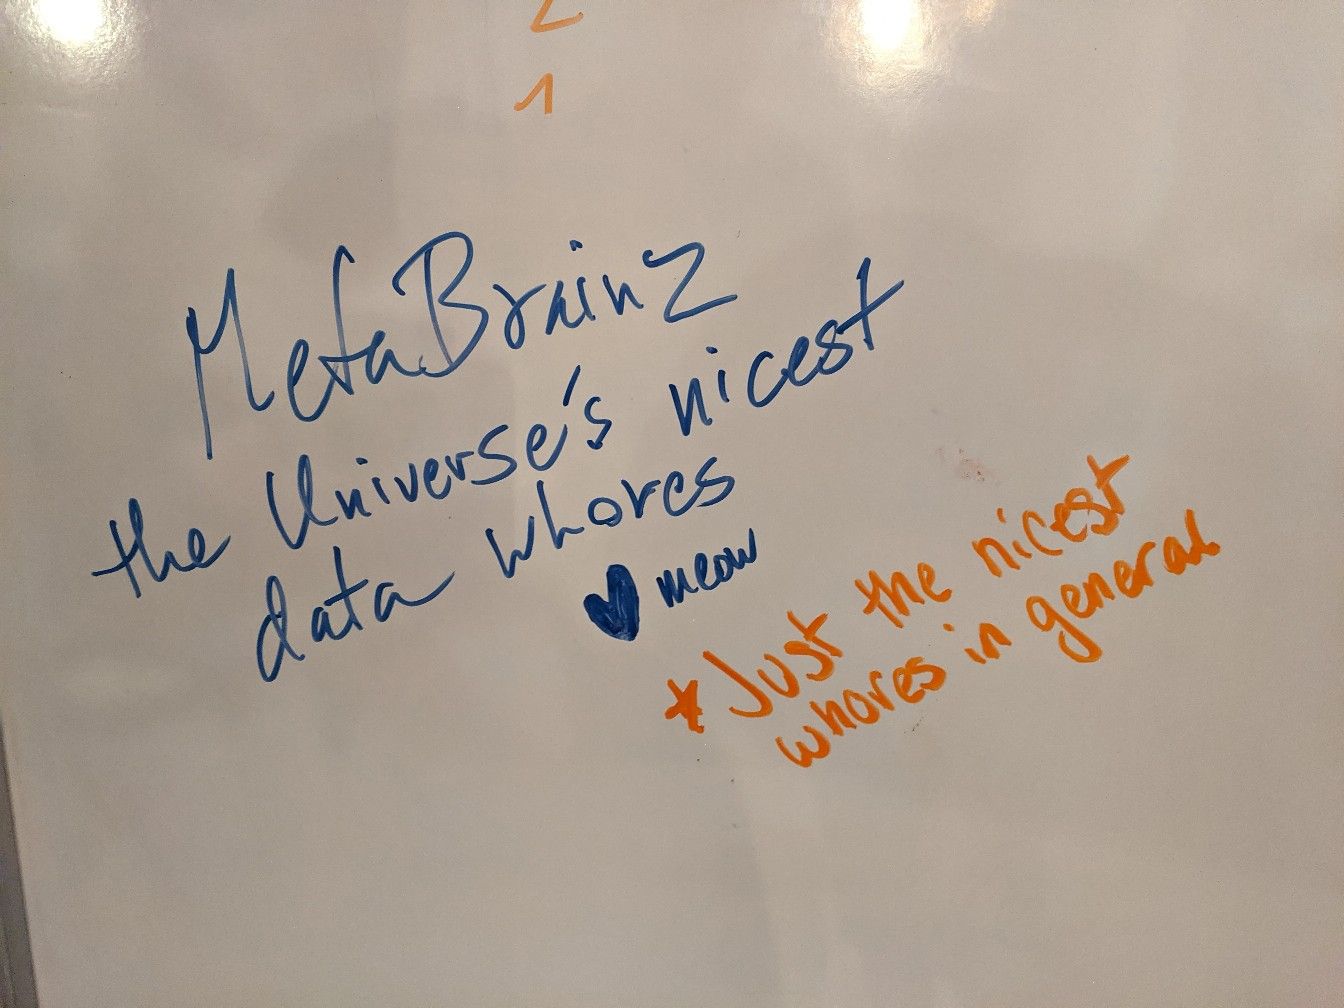 2
1
MetaBrainz
the Universe's nicest
data whores
♥ meow
* Just the nicest
whores in general